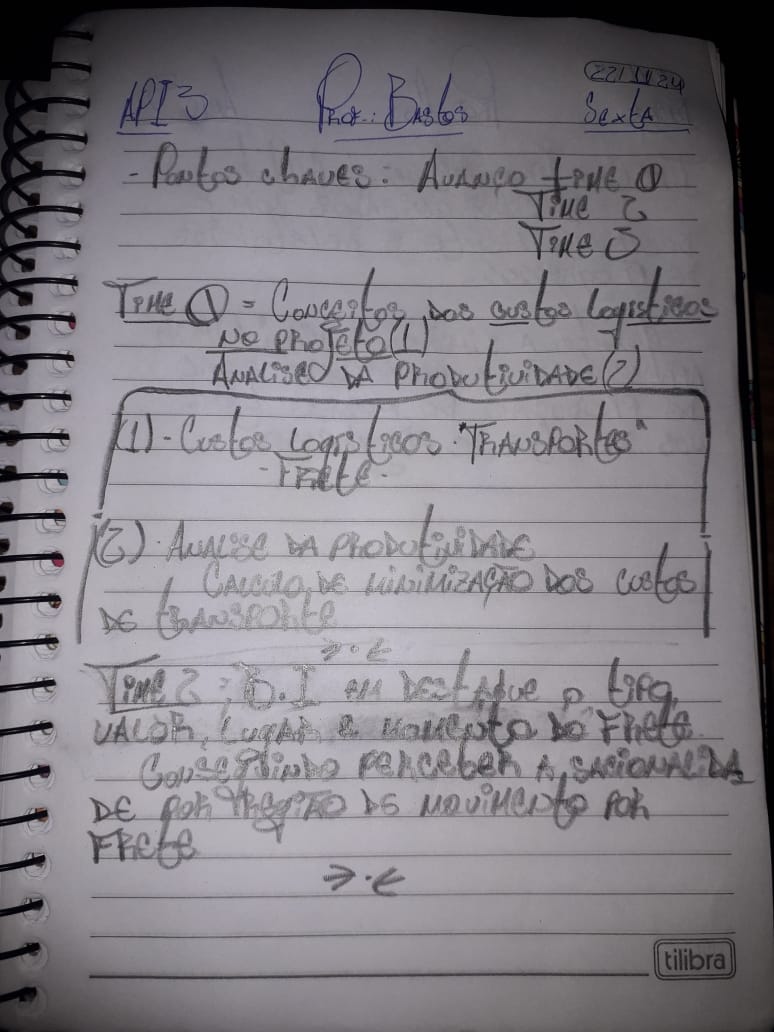 22/11/24
API 3 Prof.: Bastos Sexta
- Pontos chaves: Avanço time ①
Time 2
Time 3
Time ① = Conceitos dos custos logísticos
no projeto (1)
Analise da produtividade (2)
(1) - Custos logisticos "TRANSPORTES"
- Frete -
(2) - Analise da produtividade
Calculo de minimização dos custos
de transporte
→ · ←
Time 2: B.I em destaque o tipo,
valor, lugar e momento do frete.
Conseguindo perceber a sacionalida
de por região de movimento por
frete
→ · ←
tilibra